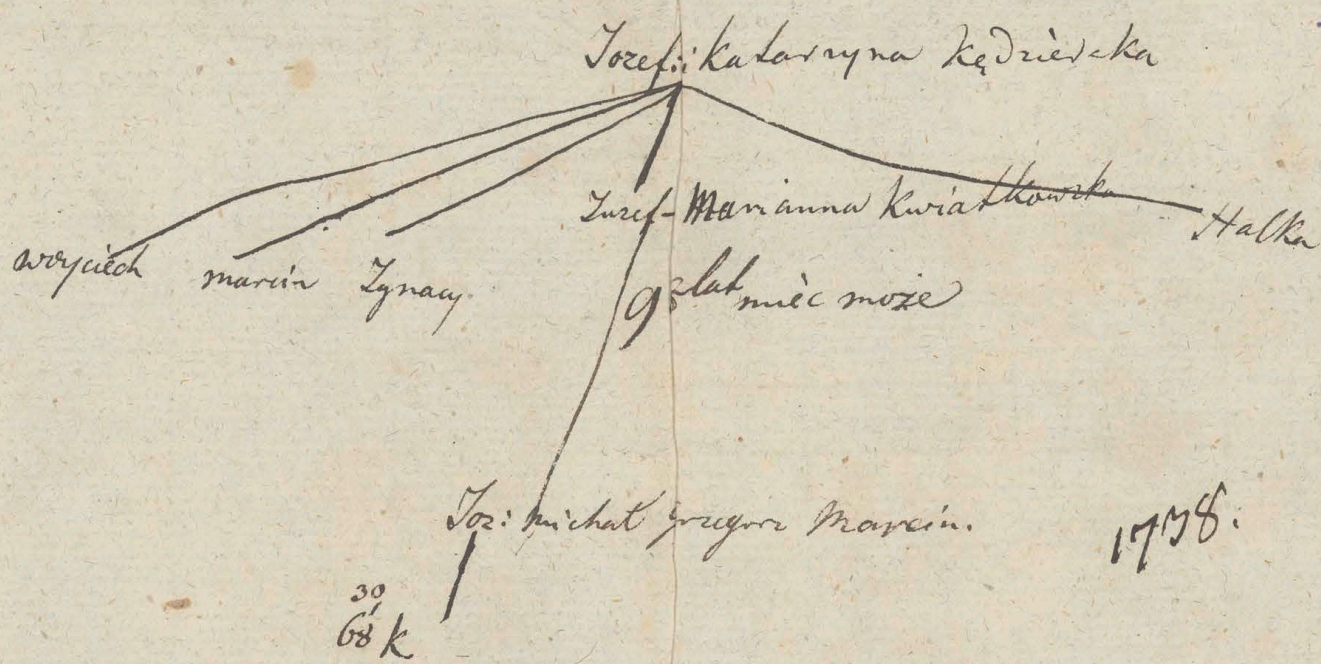 Jozef i Katarzyna Kędzierska
Jozef - Marianna Kwiatkowska
Halka
woyciech marcin Ignacy
lat mièc może
Joz: Michał Grzegorz Marcin.
1738.
30
68 k